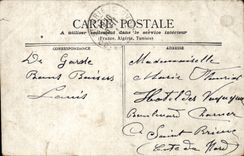 CARTE POSTALE
A utiliser seulement dans le service intérieur
(France, Algérie, Tunisie)
CORRESPONDANCE
ADRESSE
De Garde
Bons Baisers
Louis
Mademoiselle
Marie
Hotel des
Boulevard
à Saint Brieuc
Cote du Nord